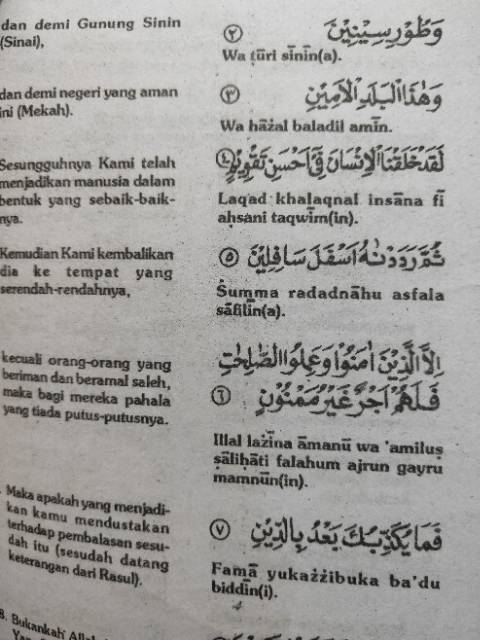 dan demi Gunung Sinin
(Sinai),
وَطُوْرِ سِيْنِيْنَ ٢
Wa ṭūri sīnīn(a).
dan demi negeri yang aman
ini (Mekah).
وَهٰذَا الْبَلَدِ الْاَمِيْنِ ٣
Wa hāżal baladil amīn.
Sesungguhnya Kami telah
menjadikan manusia dalam
bentuk yang sebaik-baik-
nya.
لَقَدْ خَلَقْنَا الْاِنْسَانَ فِيْٓ اَحْسَنِ تَقْوِيْمٍ ٤
Laqad khalaqnal insāna fī
aḥsani taqwīm(in).
Kemudian Kami kembalikan
dia ke tempat yang
serendah-rendahnya,
ثُمَّ رَدَدْنٰهُ اَسْفَلَ سَافِلِيْنَ ٥
Ṡumma radadnāhu asfala
sāfilīn(a).
kecuali orang-orang yang
beriman dan beramal saleh,
maka bagi mereka pahala
yang tiada putus-putusnya.
اِلَّا الَّذِيْنَ اٰمَنُوْا وَعَمِلُوا الصّٰلِحٰتِ
فَلَهُمْ اَجْرٌ غَيْرُ مَمْنُوْنٍ ٦
Illal lażīna āmanū wa 'amiluṣ
ṣāliḥāti falahum ajrun gayru
mamnūn(in).
Maka apakah yang menjadi-
kan kamu mendustakan
terhadap pembalasan sesu-
dah itu (sesudah datang
keterangan dari Rasul).
فَمَا يُكَذِّبُكَ بَعْدُ بِالدِّيْنِ ٧
Famā yukażżibuka ba'du
biddīn(i).
8. Bukankah